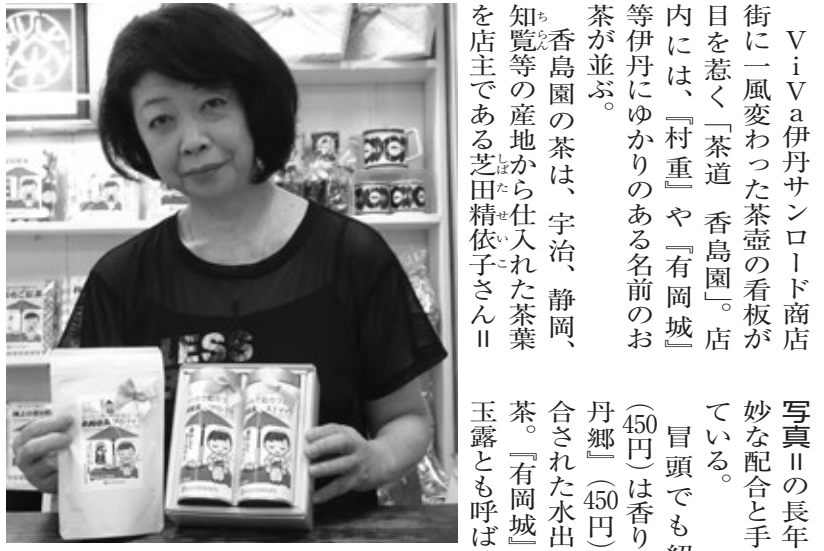 ViVa伊丹サンロード商店
街に一風変わった茶壺の看板が
目を惹く「茶道 香島園」。店
内には、『村重』や『有岡城』
等伊丹にゆかりのある名前のお
茶が並ぶ。
香島園の茶は、宇治、静岡、
知覧等の産地から仕入れた茶葉
を店主である芝田精依子さん＝
写真＝の長年
妙な配合と手
ている。
冒頭でも紹
(450円)は香り
丹郷』(450円)
合された水出
茶。『有岡城』
玉露とも呼ば